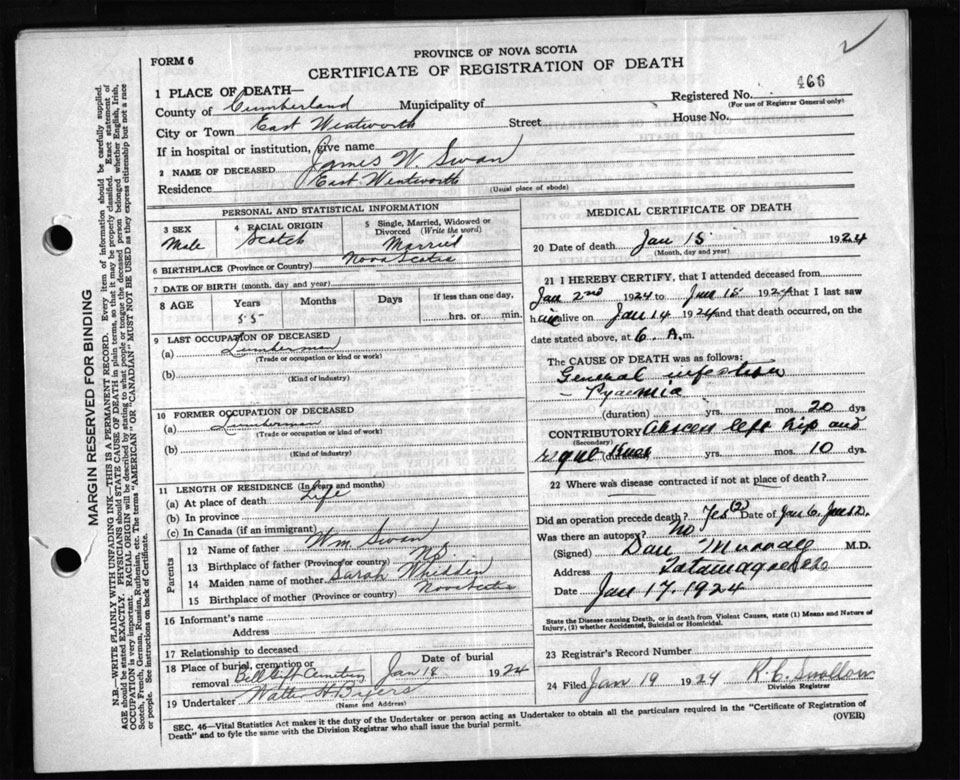 PROVINCE OF NOVA SCOTIA
FORM 6
CERTIFICATE OF REGISTRATION OF DEATH
1 PLACE OF DEATH—
Registered No. 466
(For use of Registrar General only)
County of Cumberland Municipality of
City or Town East Wentworth Street House No.
If in hospital or institution, give name
2 NAME OF DECEASED James W. Swan
Residence East Wentworth
(Usual place of abode)
PERSONAL AND STATISTICAL INFORMATION
3 SEX Male
4 RACIAL ORIGIN Scotch
5 Single, Married, Widowed or Divorced (Write the word) Married
6 BIRTHPLACE (Province or Country) Nova Scotia
7 DATE OF BIRTH (month, day and year)
8 AGE Years Months Days If less than one day,
55 hrs. or min.
9 LAST OCCUPATION OF DECEASED
(a) Lumberman
(Trade or occupation or kind or work)
(b)
(Kind of industry)
10 FORMER OCCUPATION OF DECEASED
(a) Lumberman
(Trade or occupation or kind of work)
(b)
(Kind of industry)
11 LENGTH OF RESIDENCE (In years and months)
(a) At place of death Life
(b) In province
(c) In Canada (if an immigrant)
Parents
12 Name of father Wm Swan
13 Birthplace of father (Province or country) N.S.
14 Maiden name of mother Sarah Whidden
15 Birthplace of mother (Province or country) Nova Scotia
16 Informant's name
Address
17 Relationship to deceased
18 Place of burial, cremation or removal Cemetery
Date of burial Jan 18 1924
19 Undertaker Walter H Byers
(Name and Address)
MEDICAL CERTIFICATE OF DEATH
20 Date of death Jan 15 1924
(Month, day and year)
21 I HEREBY CERTIFY, that I attended deceased from
Jan 2nd 1924 to Jan 15 1924 that I last saw
h im alive on Jan 14 1924 and that death occurred, on the
date stated above, at 6 A.m.
The CAUSE OF DEATH was as follows:
General infection
– Pyaemia
(duration) yrs. mos. 20 dys
CONTRIBUTORY Abscess left hip and
(Secondary)
right knee (duration) yrs. mos. 10 dys.
22 Where was disease contracted if not at place of death?
Did an operation precede death? Yes (2) Date of Jan 6. Jan 12.
Was there an autopsy? No
(Signed) Dan Murray M.D.
Address Tatamagouche
Date Jan 17. 1924
State the Disease causing Death, or in death from Violent Causes, state (1) Means and Nature of
Injury, (2) whether Accidental, Suicidal or Homicidal.
23 Registrar's Record Number
24 Filed Jan 19 1924 R. C. Swallow
Division Registrar
SEC. 46—Vital Statistics Act makes it the duty of the Undertaker or person acting as Undertaker to obtain all the particulars required in the "Certificate of Registration of
Death" and to fyle the same with the Division Registrar who shall issue the burial permit. (OVER)
MARGIN RESERVED FOR BINDING
N.B.—WRITE PLAINLY WITH UNFADING INK—THIS IS A PERMANENT RECORD. Every item of information should be carefully supplied.
AGE should be stated EXACTLY. PHYSICIANS should STATE CAUSE OF DEATH in plain terms, so that it may be properly classified. Exact statement of
OCCUPATION is very important. RACIAL ORIGIN will be described by stating to what people or tongue the deceased person belonged whether English, Irish,
Scotch, French, German, Russian, Ruthenian, etc. The terms "AMERICAN" OR "CANADIAN" MUST NOT BE USED as they express citizenship but not a race
or people. See instructions on back of Certificate.